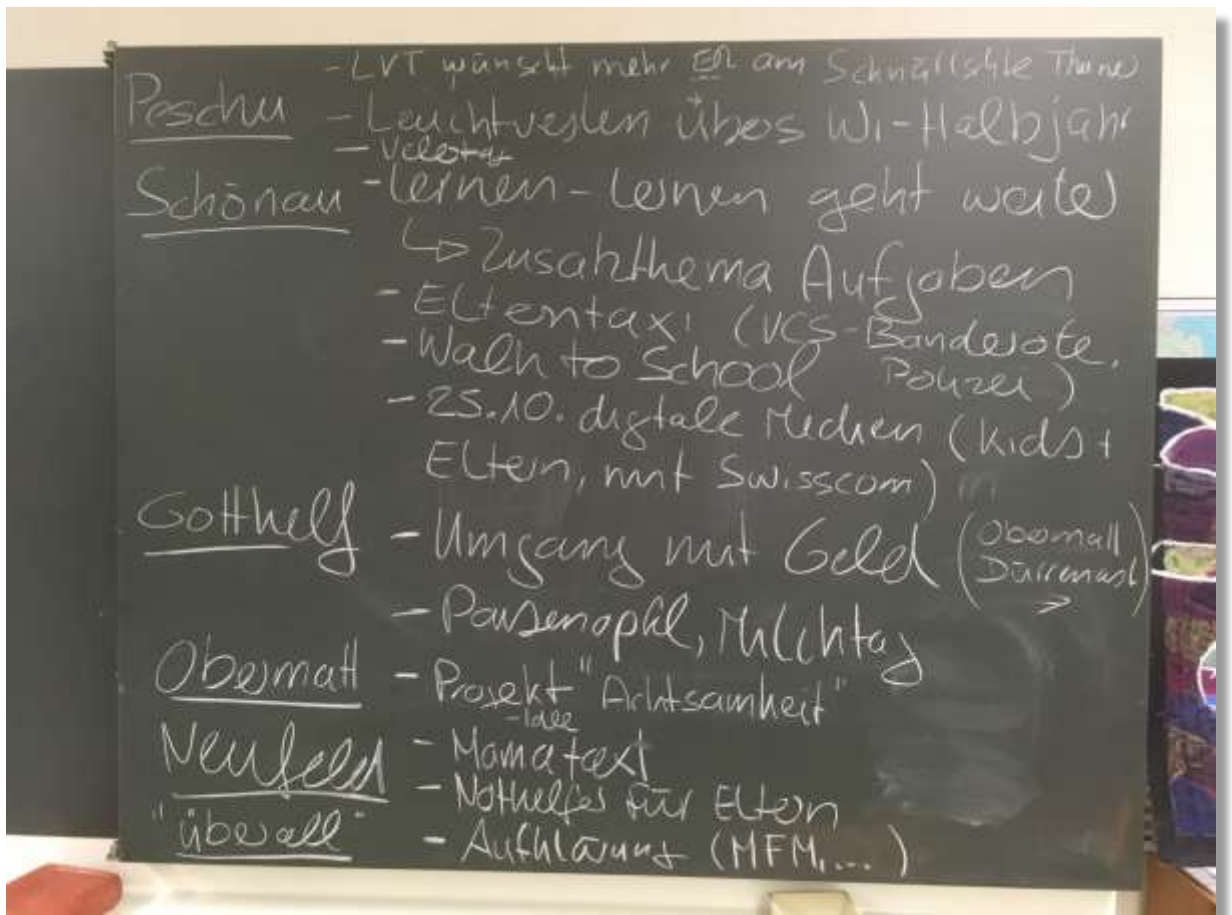 - LVT wünscht mehr ER am Thema
Peschu - Leuchtwesten übers Wi-Halbjahr
Schönau - Lernen - Lernen geht weiter
↳ Zusatzthema Aufgaben
- Elterntaxi (VCS-Banderole,
- Walk to School Polizei)
- 25.10. digitale Medien (Kids +
Eltern, mit Swisscom)
Gotthelf - Umgang mit Geld (Obermatt
Dürrenast)
- Pausenapfel, Milchtag
Obermatt - Projekt "Achtsamheit"
-idee
Neufeld - Mamataxi
- Nothelfer für Eltern
"überall" - Aufklärung (MFM, ...)